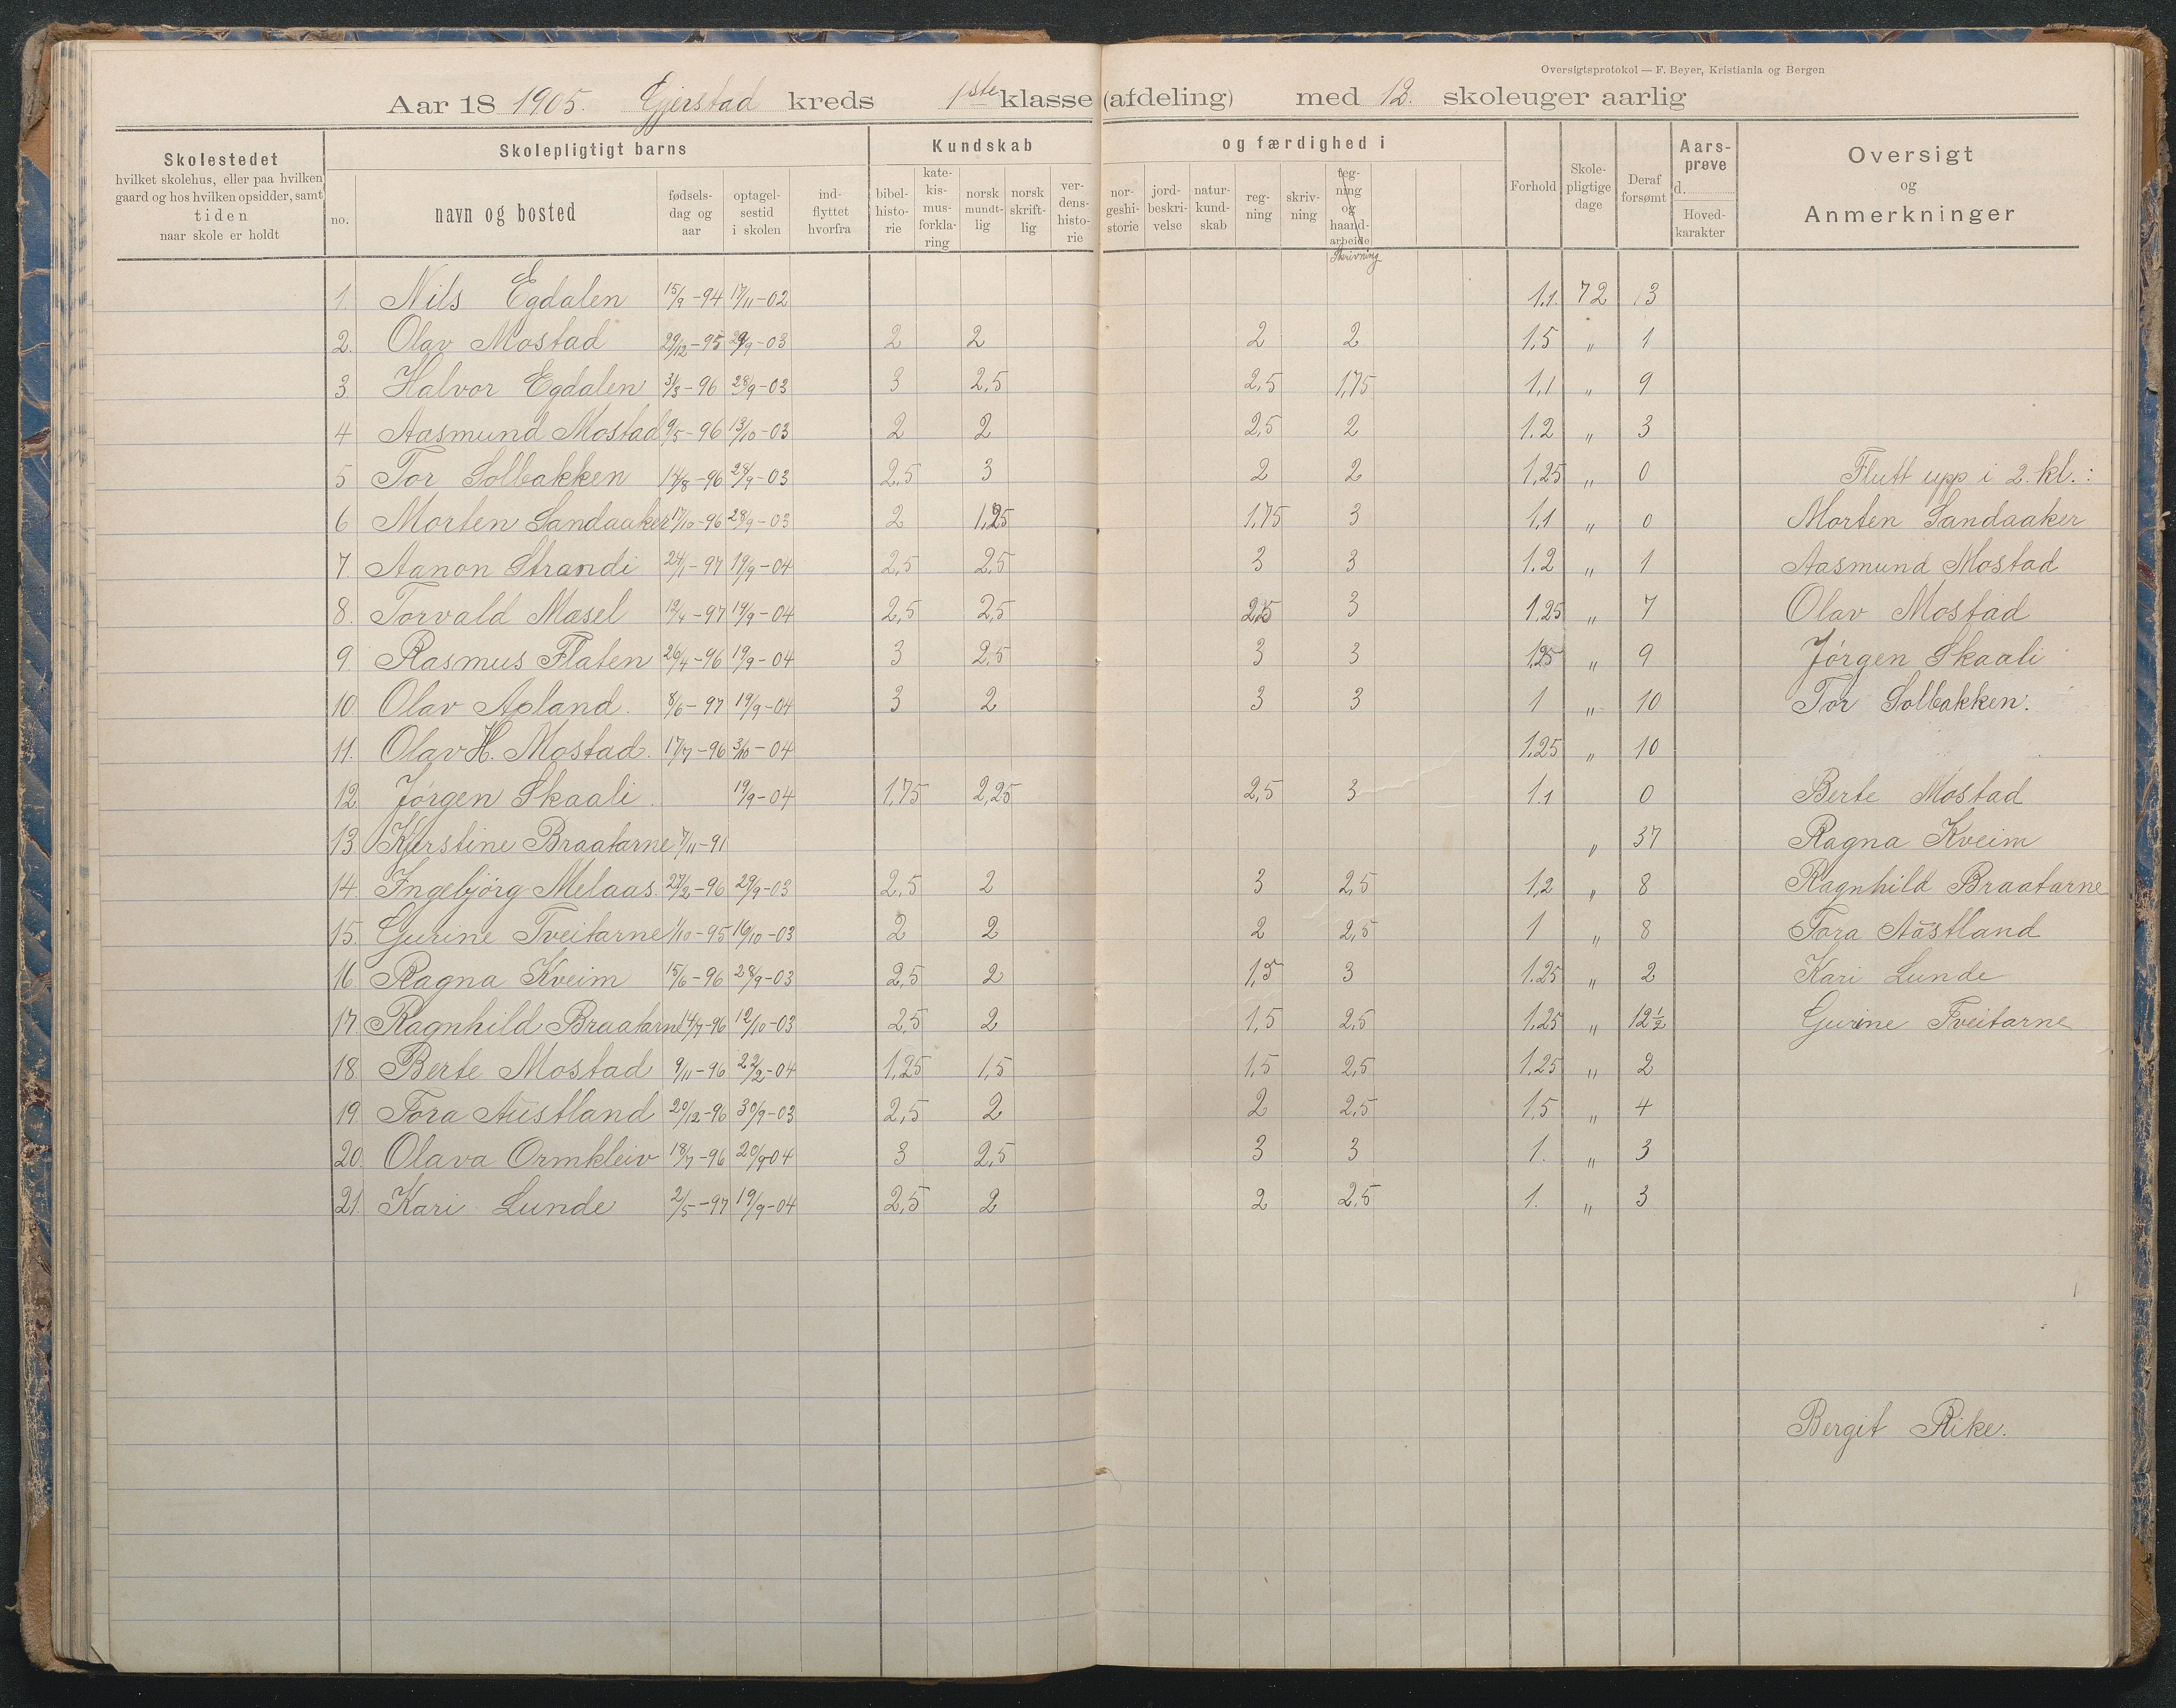 Oversigtsprotokol — F. Beyer, Kristiania og Bergen
Aar 18 1905. Gjerstad kreds 1ste klasse (afdeling) med 12. skoleuger aarlig
Skolestedet
hvilket skolehus, eller paa hvilken
gaard og hos hvilken opsidder, samt
tiden
naar skole er holdt
Skolepligtigt barns
no.
navn og bosted
fødsels-
dag og
aar
optagel-
sestid
i skolen
ind-
flyttet
hvorfra
Kundskab
bibel-
histo-
rie
kate-
kis-
mus-
forkla-
ring
norsk
mundt-
lig
norsk
skrift-
lig
ver-
dens-
histo-
rie
og færdighed i
nor-
geshi-
storie
jord-
beskri-
velse
natur-
kund-
skab
reg-
ning
skriv-
ning
teg-
ning
og
haand-
arbeide
Skrivning
Forhold
Skole-
pligtige
dage
Deraf
forsømt
Aars-
prøve
d.
Hoved-
karakter
Oversigt
og
Anmerkninger
1. Nils Egdalen 15/9-94 17/11-02 1,1. 72 13
2. Olav Mostad 29/12-95 29/9-03 2 2 2 2 1,5 „ 1
3. Halvor Egdalen 31/3-96 28/9-03 3 2,5 2,5 1,75 1,1 „ 9
4 Aasmund Mostad 9/5-96 13/10-03 2 2 2,5 2 1.2 „ 3
5 Tor Solbakken 14/8-96 28/9-03 2,5 3 2 2 1,25 „ 0 Flutt upp i 2. kl.:
6 Morten Sandaaker 17/10-96 28/9-03 2 1,25 1,75 3 1,1 „ 0 Morten Sandaaker
7. Aanon Strandi 24/1-97 19/9-04 2,5 2,5 3 3 1.2 „ 1 Aasmund Mostad
8. Torvald Mæsel 12/4-97 19/9-04 2,5 2,5 2,25 3 1,25 „ 7 Olav Mostad
9. Rasmus Flaten 26/4-96 19/9-04 3 2,5 3 3 1,25 „ 9 Jørgen Skaali
10. Olav Apland. 8/6-97 19/9-04 3 2 3 3 1 „ 10 Tor Solbakken.
11. Olav H. Mostad. 17/7-96 3/10-04 1,25 „ 10
12. Jørgen Skaali. 19/9-04 1,75 2,25 2,5 3 1.1 0 Berte Mostad
13. Kjerstine Braatarne 7/11-91 „ 37 Ragna Kveim
14. Ingebjørg Melaas. 27/2-96 29/9-03 2,5 2 3 2,5 1,2 „ 8 Ragnhild Braatarne
15. Gurine Tveitarne 1/10-95 16/10-03 2 2 2 2,5 1 „ 8 Tora Aústland
16 Ragna Kveim 15/6-96 28/9-03 2,5 2 1,5 3 1.25 „ 2 Kari Lunde
17. Ragnhild Braatarne 14/7-96 12/10-03 2,5 2 1,5 2,5 1,25 „ 12 1/2 Gurine Tveitarne
18. Berte Mostad 9/11-96 22/2-04 1,25 1,5 1,5 2,5 1,25 „ 2
19. Tora Aústland 20/12-96 30/9-03 2,5 2 2 2,5 1,5 „ 4
20. Olava Ormkleiv 18/7-96 20/9-04 3 2,5 3 3 1. „ 3
21. Kari Lunde 2/5-97 19/9-04 2,5 2 2 2,5 1. „ 3
Bergit Rike.